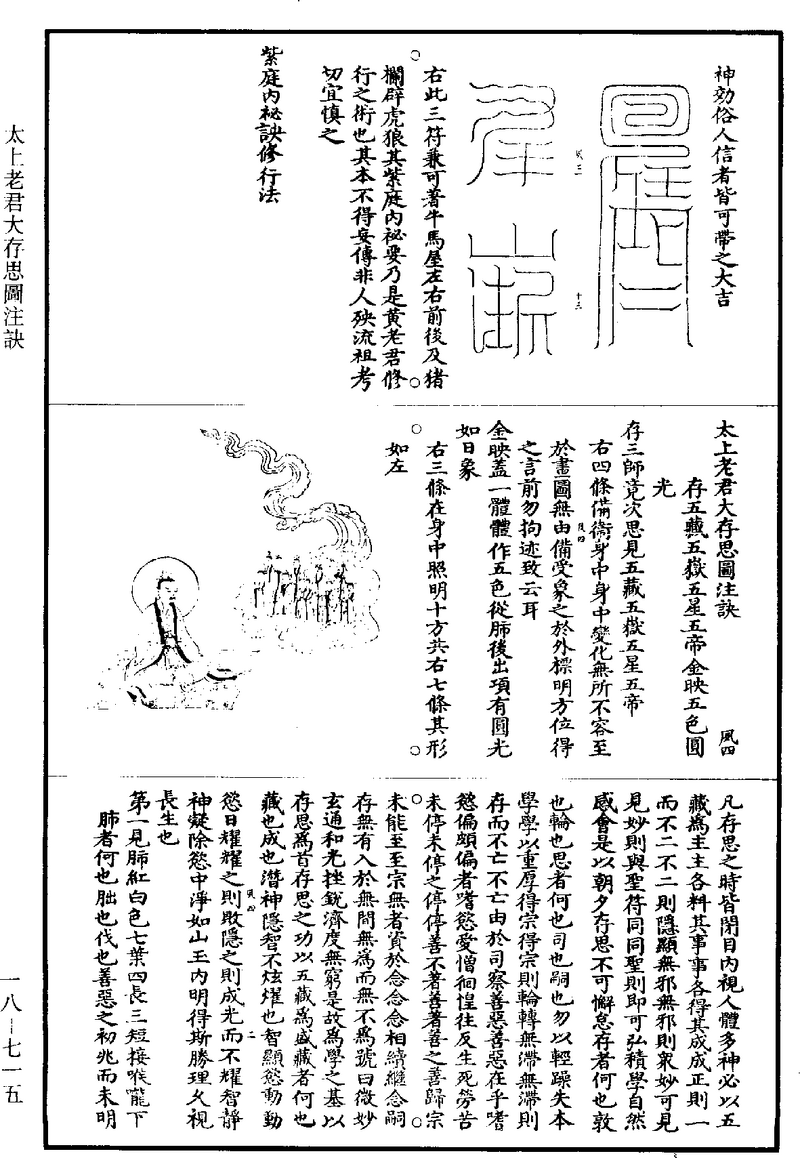 太上老君大存思圖注訣
一八—七一五
神効俗人信者皆可帶之大吉
風三
十三
右此三符兼可著牛馬屋左右前後及猪
欄辟虎狼其紫庭內祕要乃是黄老君修
行之術也其本不得妄傳非人殃流祖考
切宜慎之
紫庭內祕訣修行法
太上老君大存思圖注訣 風四
存五藏五嶽五星五帝金映五色圓
光
存三師竟次思見五藏五嶽五星五帝
右四條備衞身中身中變化無所不容至
風四
於畫圖無由備受象之於外標明方位得
之言前勿拘迹致云耳
金映蓋一體體作五色從肺後出項有圓光
如日象
右三條在身中照明十方共右七條其形
如左
凡存思之時皆閉目內視人體多神必以五
藏為主主各料其事事各得其成成正則一
而不二不二則隱顯無邪無邪則衆妙可見
見妙則與聖符同同聖則即可弘積學自然
感會是以朝夕存思不可懈怠存者何也敦
也輪也思者何也司也嗣也勿以輕躁失本
學學以重厚得宗得宗則輪轉無滯無滯則
存而不亡不亡由於司察善惡善惡在乎嗜
慾偏頗偏者嗜慾愛憎徊惶往反生死勞苦
未停未停之停停善不著善著善之善歸宗
未能至至宗無者資於念念念相續繼念嗣
存無有入於無間無為而無不為號曰微妙
玄通和光挫銳濟度無窮是故為學之基以
存思為首存思之功以五藏為盛藏者何也
藏也成也潛神隱智不炫燿也智顯慾動動
風四
二
慾日耀耀之則敗隱之則成光而不耀智靜
神凝除慾中淨如山玉內明得斯勝理久視
長生也
第一見肺紅白色七葉四長三短接喉嚨下
肺者何也朏也伐也善惡之初兆而未明